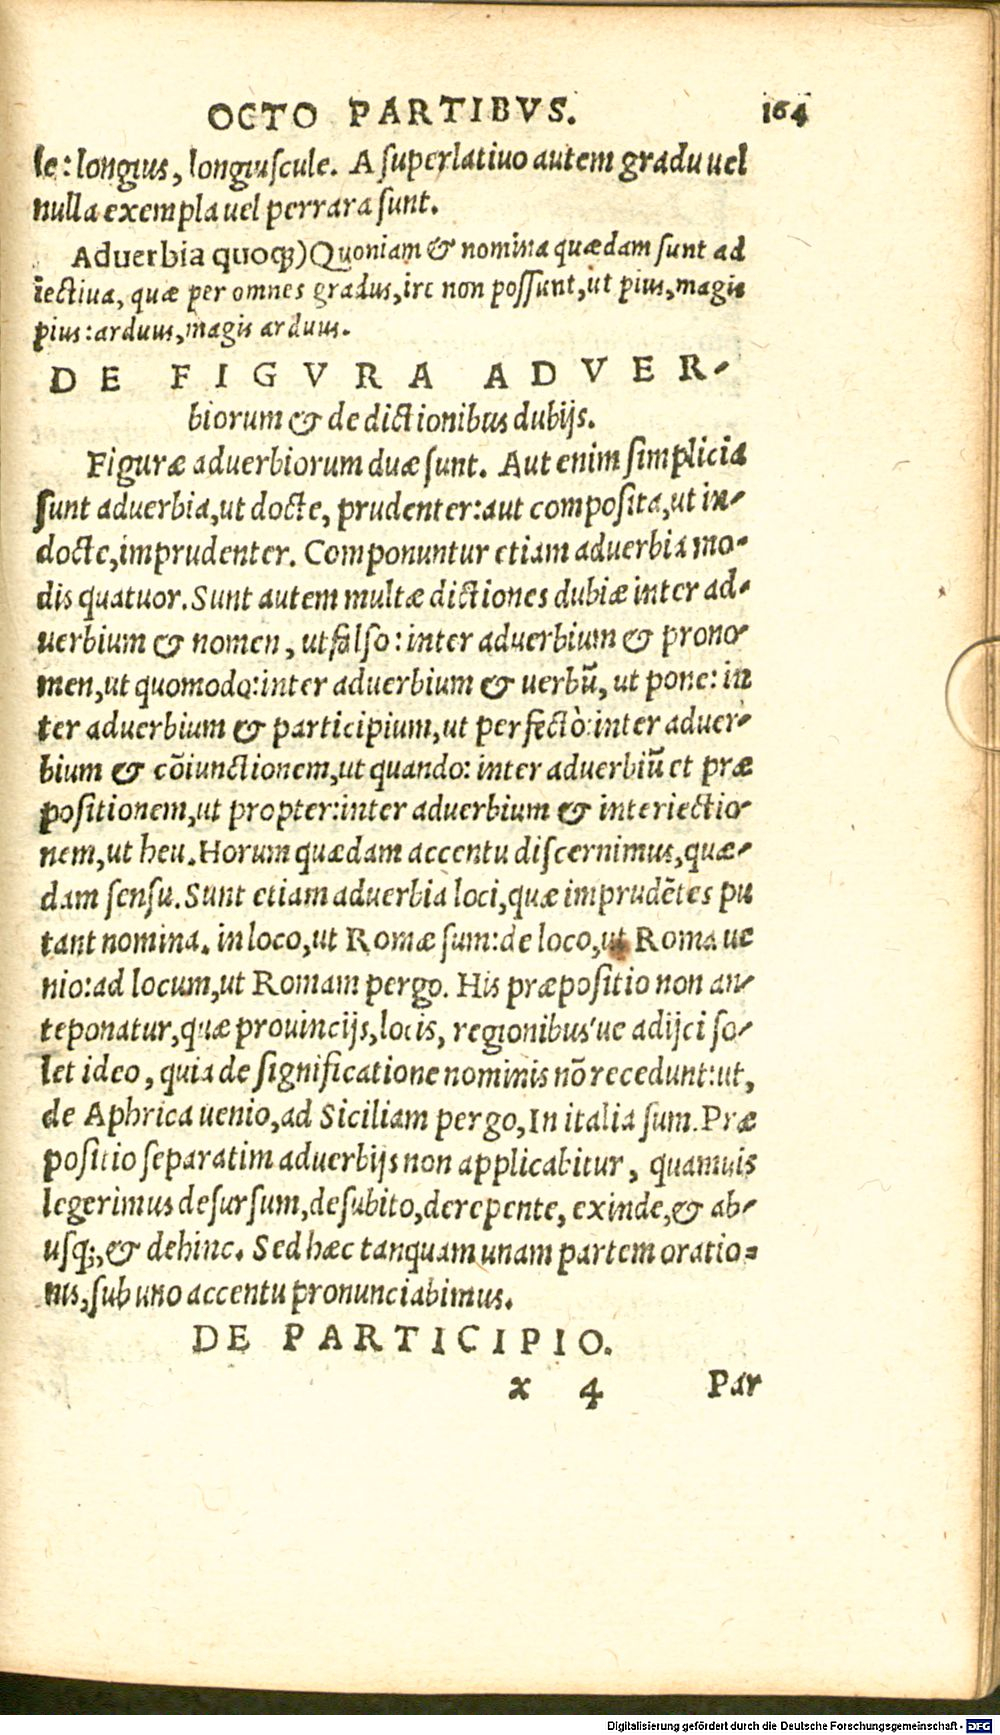 OCTO PARTIBVS. 164
le: longius, longiuscule. A superlatiuo autem gradu uel
nulla exempla uel perrara sunt.
Aduerbia quoq;) Quoniam & nomina quædam sunt ad
iectiua, quæ per omnes gradus, ire non possunt, ut pius, magis
pius: arduus, magis arduus.
DE FIGVRA ADVER-
biorum & de dictionibus dubijs.
Figuræ aduerbiorum duæ sunt. Aut enim simplicia
sunt aduerbia, ut docte, prudenter: aut composita, ut in-
docte, imprudenter. Componuntur etiam aduerbia mo-
dis quatuor. Sunt autem multæ dictiones dubiæ inter ad-
uerbium & nomen, ut falso: inter aduerbium & prono-
men, ut quomodo: inter aduerbium & uerbũ, ut pone: in
ter aduerbium & participium, ut perfectò: inter aduer-
bium & cõiunctionem, ut quando: inter aduerbiũ et præ
positionem, ut propter: inter aduerbium & interiectio-
nem, ut heu. Horum quædam accentu discernimus, quæ-
dam sensu. Sunt etiam aduerbia loci, quæ imprudẽtes pu
tant nomina. in loco, ut Romæ sum: de loco, ut Roma ue
nio: ad locum, ut Romam pergo. His præpositio non an-
teponatur, quæ prouincijs, locis, regionibus'ue adijci so-
let ideo, quia de significatione nominis nõ recedunt: ut,
de Aphrica uenio, ad Siciliam pergo, In italia sum. Præ
positio separatim aduerbijs non applicabitur, quamuis
legerimus desursum, desubito, derepente, exinde, & ab-
usq;, & dehinc. Sed hæc tanquam unam partem oratio-
nis, sub uno accentu pronunciabimus.
DE PARTICIPIO.
x 4 Par
Digitalisierung gefördert durch die Deutsche Forschungsgemeinschaft - DFG